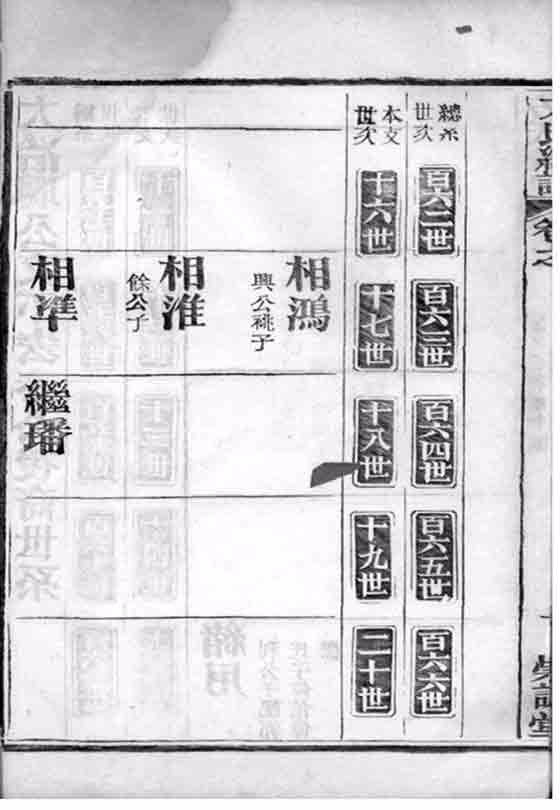 總系世次
百六二世
百六三世
百六四世
百六五世
百六六世
本支世次
十六世
十七世
十八世
十九世
二十世
相鴻
興公祧子
相淮
餘公子
相準
繼璠